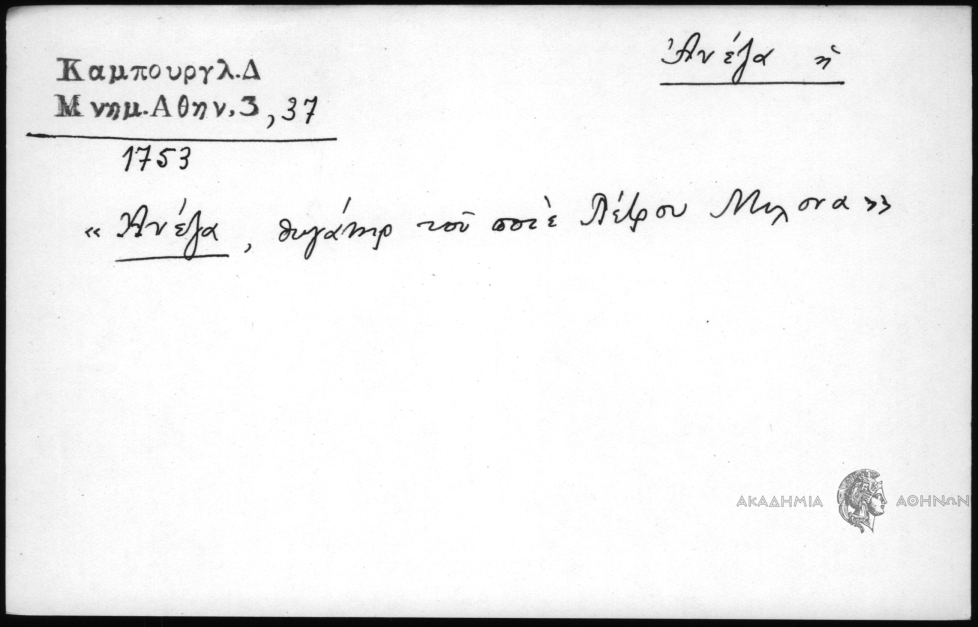 Ἀνέζα ἡ
Καμπουργλ.Δ
Μνημ.Αθην.3,37
1753
« Ἀνέζα, θυγάτηρ τοῦ ποτὲ Πέτρου Μυλονα »
ΑΚΑΔΗΜΙΑ ΑΘΗΝΩΝ